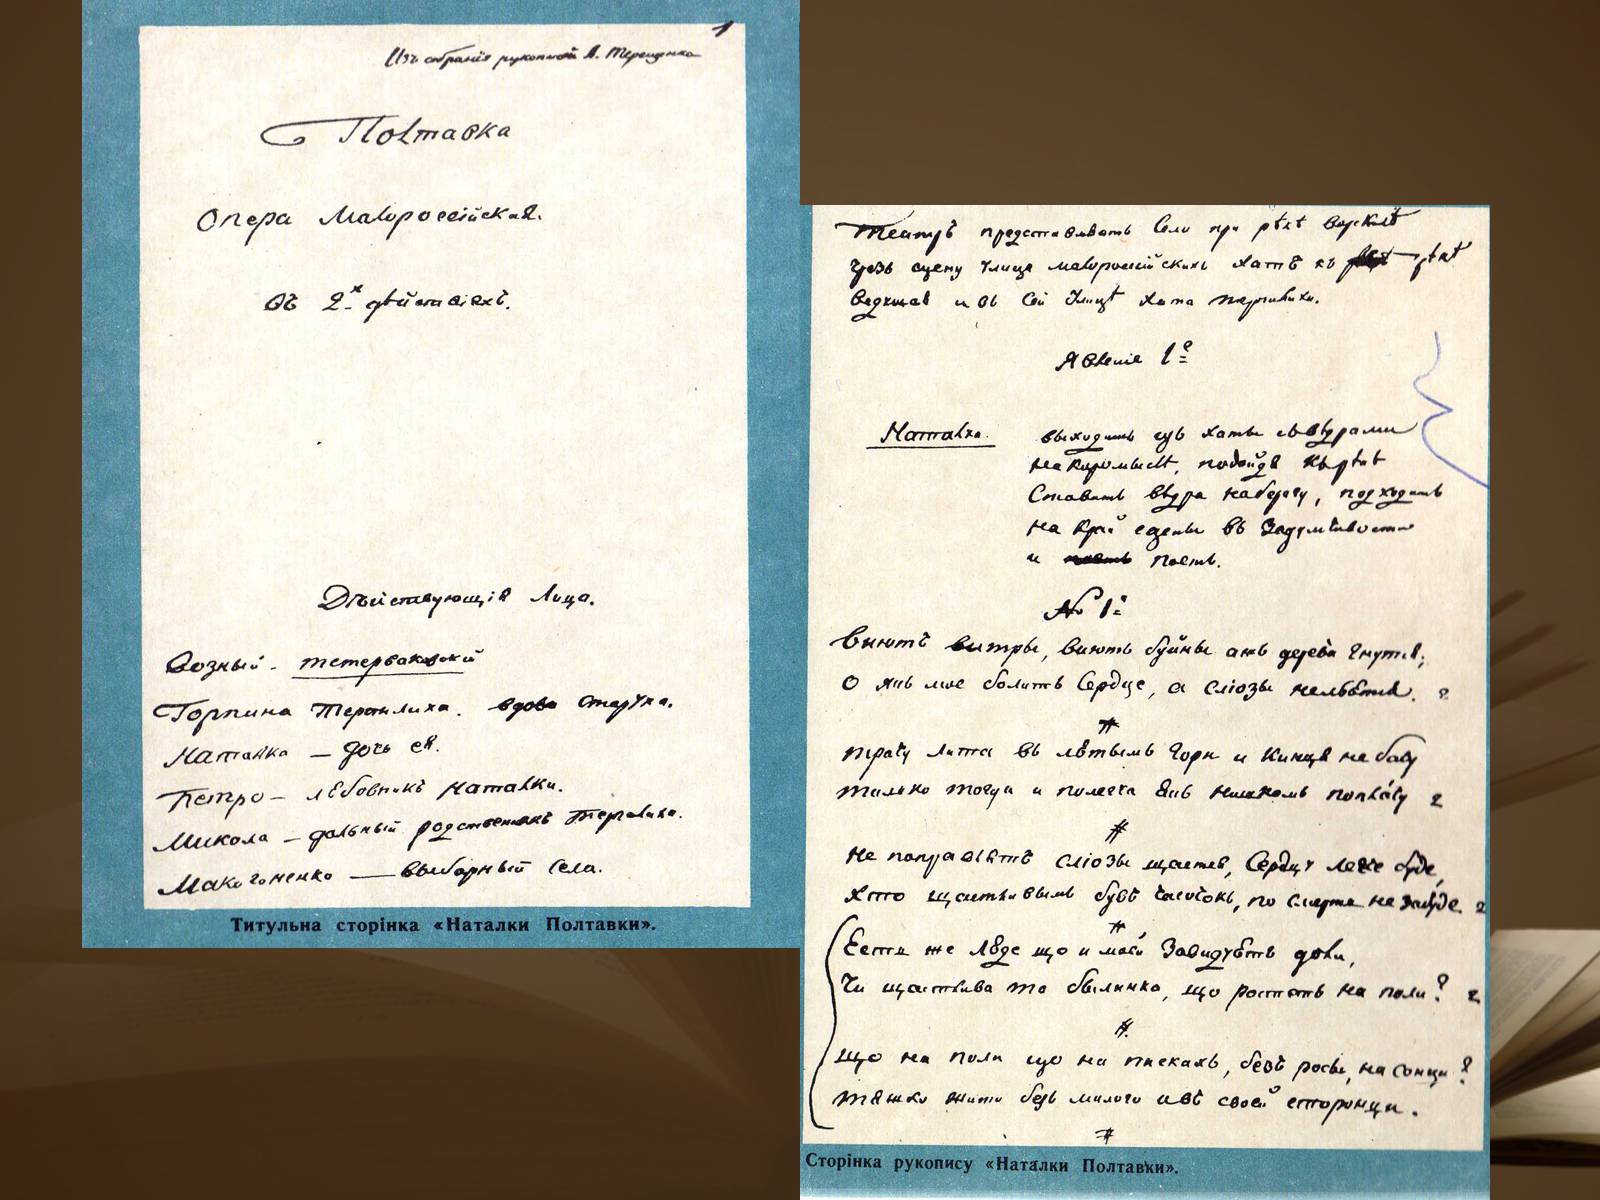 1
Изъ собранія рукописей А. Терещенка
Полтавка
Опера Малороссійская.
въ 2-х дѣйствіяхъ.
Дѣйствующія Лица.
Возный - тетерваковскій
Горпина Терпилиха. вдова старуха.
Наталка — дочь ея.
Петро — любовникъ Наталки.
Микола — дальный родственникъ Терпилихи.
Макогоненко — выборный села.
Титульна сторінка «Наталки Полтавки».
Театръ представляетъ Село при рѣкѣ Ворсклѣ
чрезъ сцену улица малороссійскихъ хатъ къ рѣкѣ
ведущая и въ сей улицѣ хата терпилихи.
Явленіе 1е
Наталка. выходитъ изъ хаты съ вѣдрами
на коромыслѣ, подойдя къ рѣкѣ
Ставитъ вѣдра на берегу, подходитъ
на край сцены въ задумчивости
и поетъ.
№ 1й
Віютъ витры, віютъ буйны ажъ дерева гнутся;
О якъ мое болитъ Сердце, а сліозы не льются. 2
#
трачу лита въ лютымъ гори и кинця не бачу
тилько тогда и полегча якъ нишкомъ поплачу 2
#
не поправлятъ сліозы щастья, Сердцу легче буде,
хто щастливымъ бувъ часочокъ, по смерть не забуде. 2
#
Есть же люде що и моей завидуютъ доли,
Чи щастлива та былинка, що ростетъ на поли? 2
#
що на поли що на пискахъ, безъ росы, на сонци?
тяжко жити безъ милого и въ своей сторонци.
#
Сторінка рукопису «Наталки Полтавки».